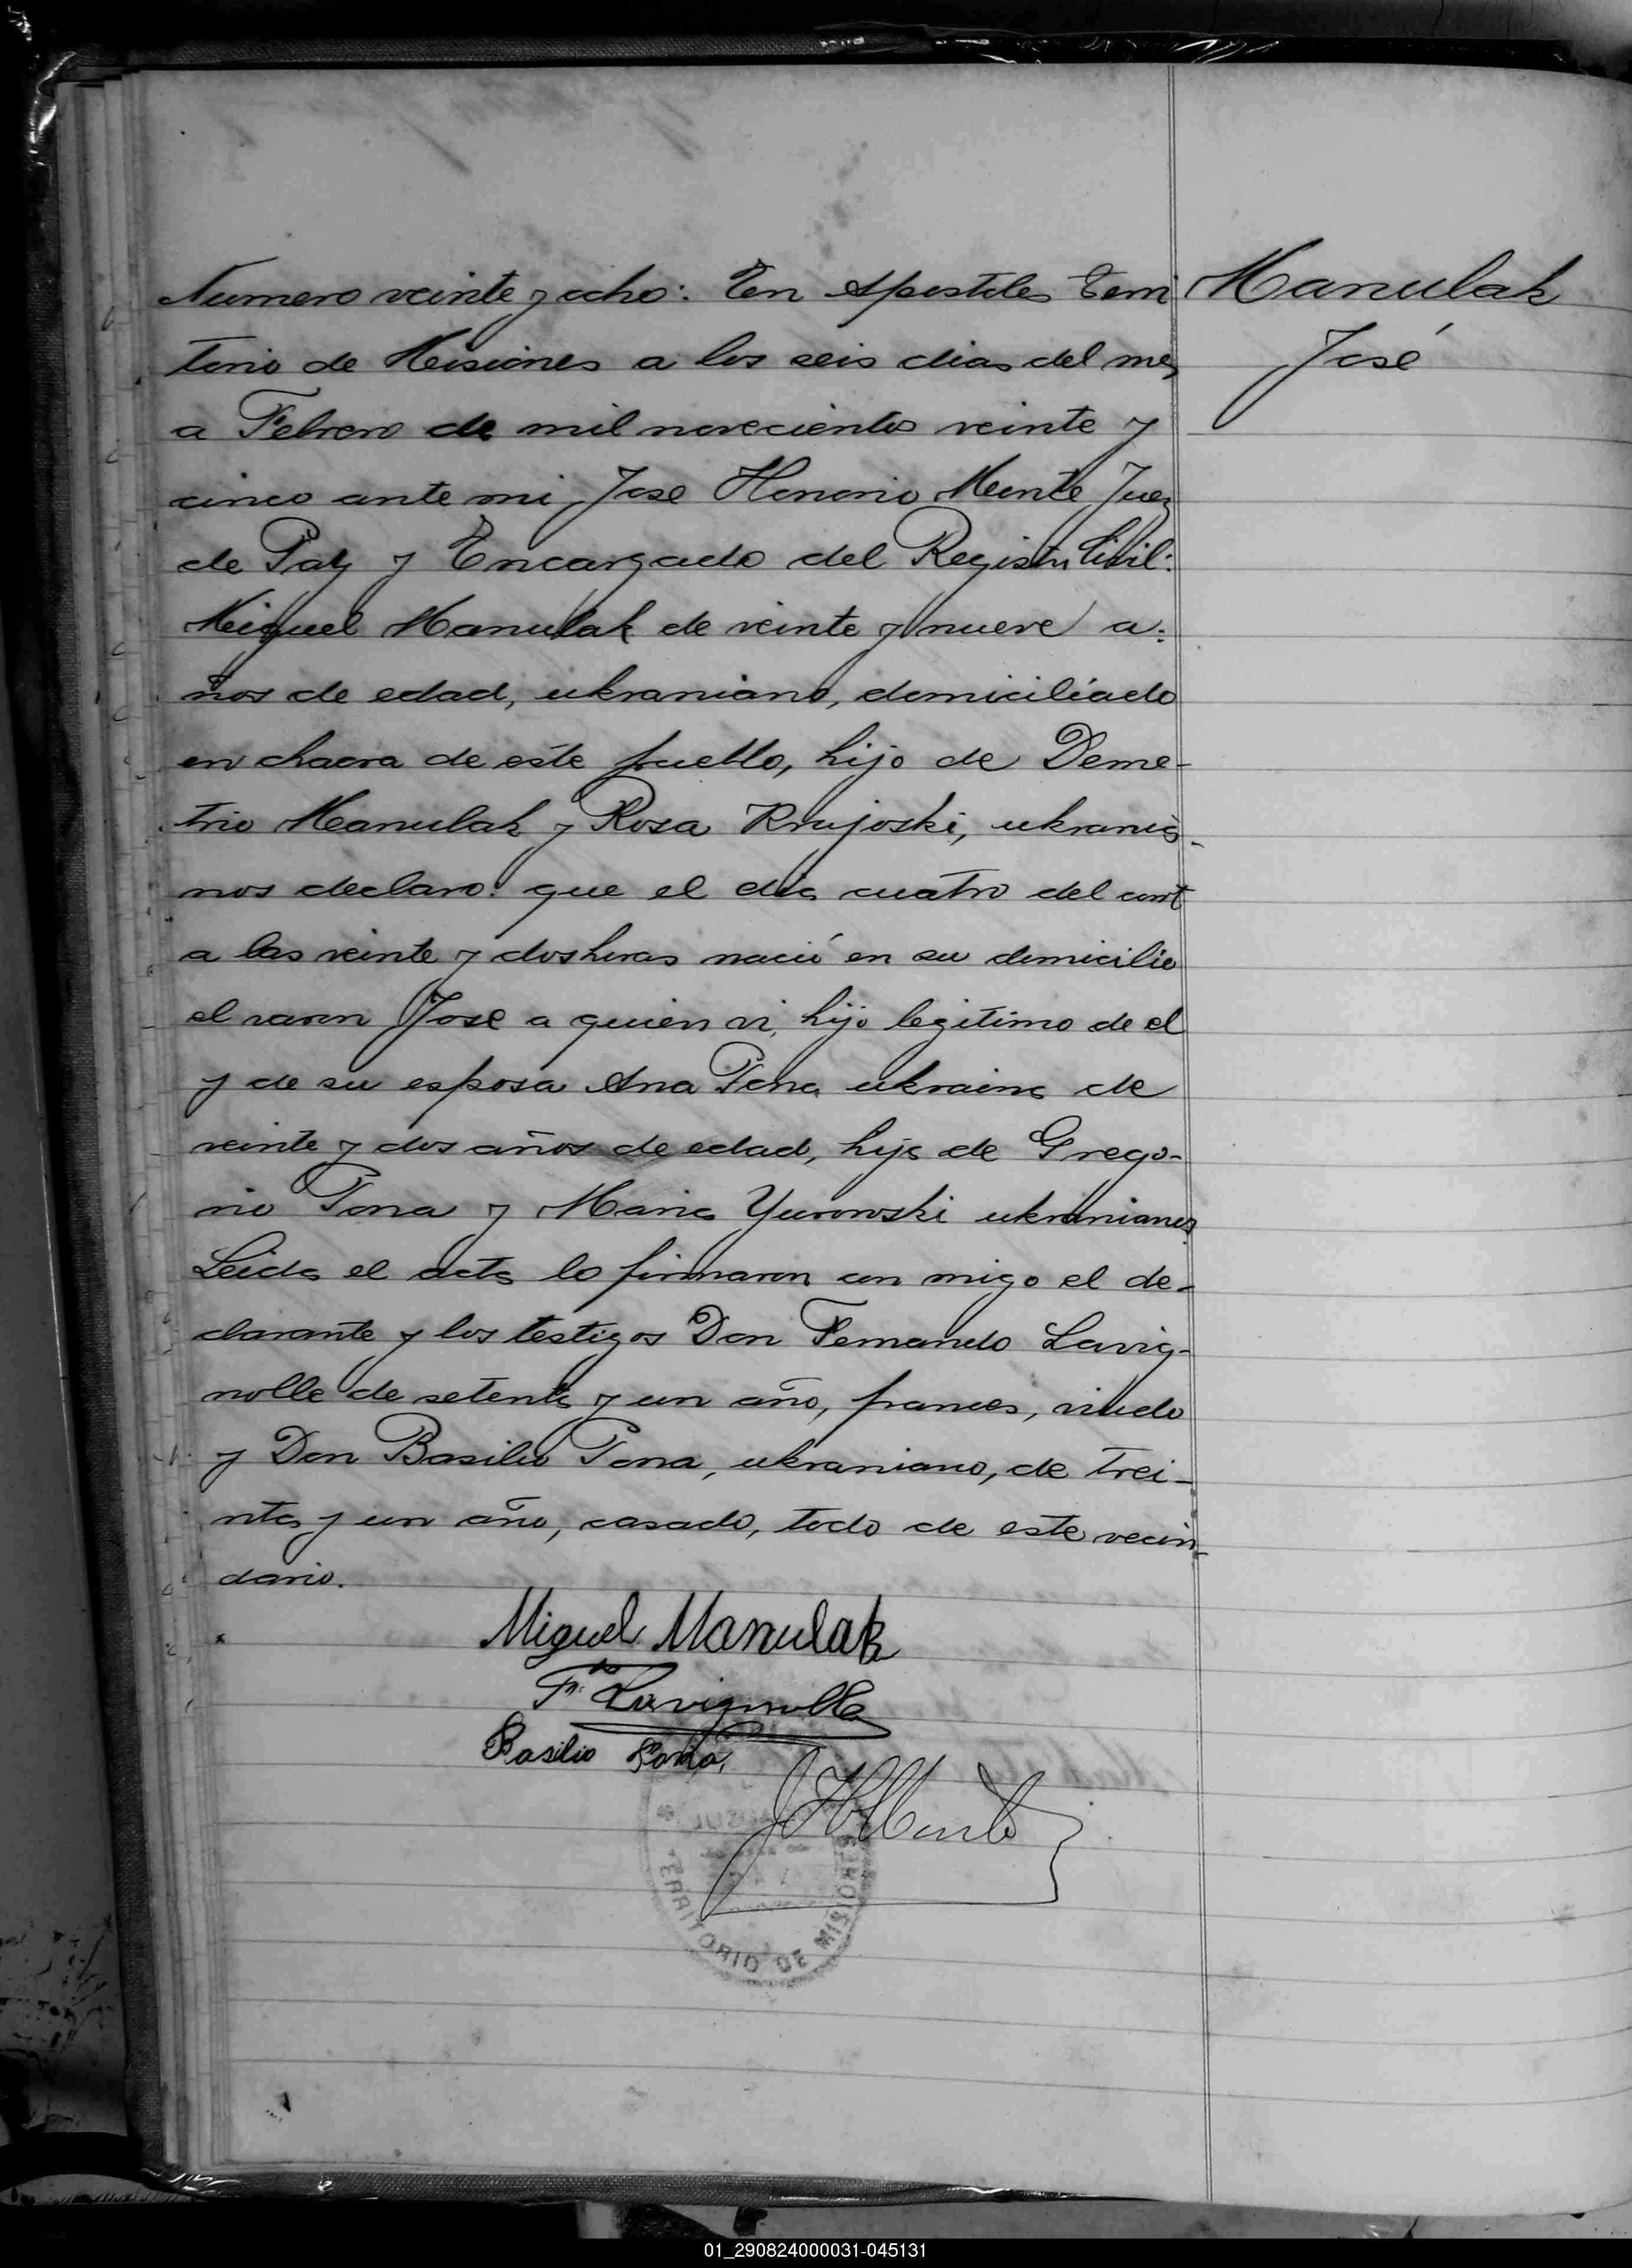 Manulak
José
Numero veinte y ocho: En Apostoles Terri
torio de Misiones a los seis dias del mes
a Febrero de mil novecientos veinte y
cinco ante mi, Jose Honorio Monte Juez
de Paz y Encargado del Registro Civil:
Miguel Manulak de veinte y nueve a:
ños de edad, ukraniano, domiciliado
en chacra de este pueblo, hijo de Deme-
trio Manulak y Rosa Krujoski, ukrania-
nos declaro: que el dia cuatro del corrt
a las veinte y dos horas nació en su domicilio
el varon Jose a quien vi, hijo legitimo de el
y de su esposa Ana Pona ukraina de
veinte y dos años de edad, hija de Grego-
rio Pona y Maria Yurowski ukranianos
Leida el acta lo firmaron con migo el de-
clarante y los testigos Don Fernando Lavig-
nolle de setenta y un año, frances, viudo
y Don Basilio Pona, ukraniano, de trei-
nta y un año, casado, todo de este vecin-
dario.
Miguel Manulak
F. Lavignolle
Basilio Pona,
JHMonte
TERRITORIO DE MISIONES
01_290824000031-045131